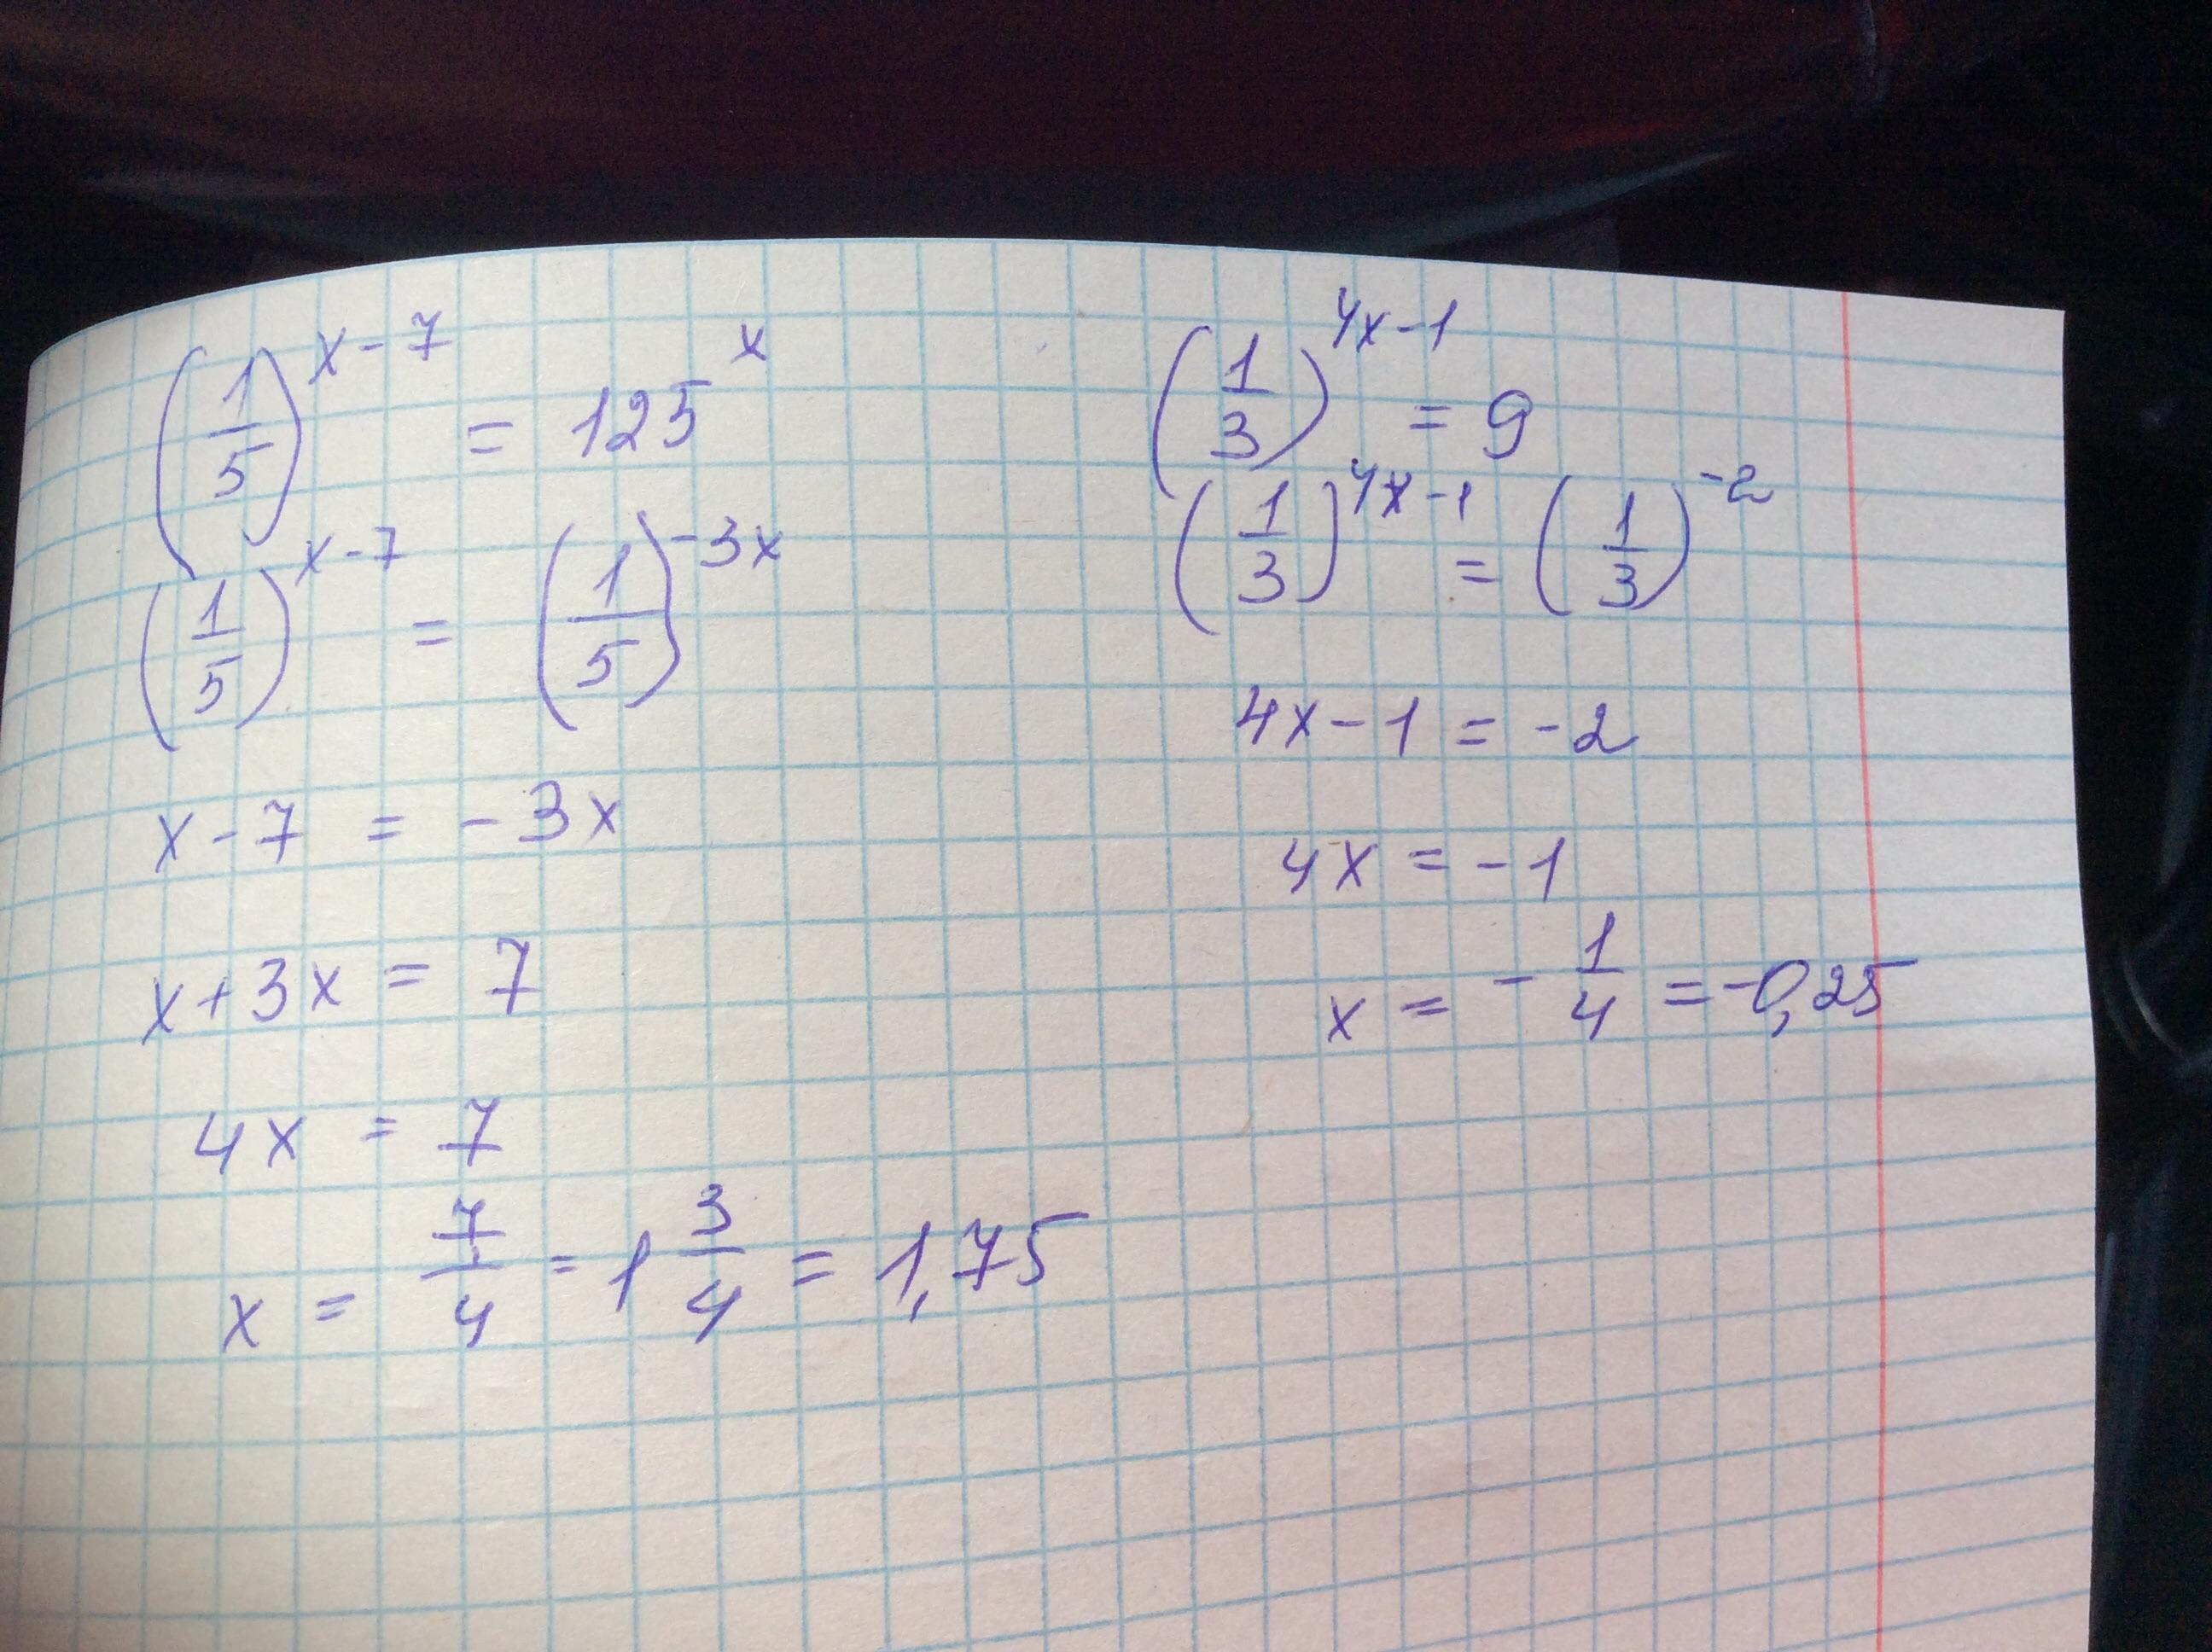 (1/5)^(x-7) = 125^x
(1/5)^(x-7) = (1/5)^(-3x)
x - 7 = -3x
x + 3x = 7
4x = 7
x = 7/4 = 1 3/4 = 1,75
(1/3)^(4x-1) = 9
(1/3)^(4x-1) = (1/3)^(-2)
4x - 1 = -2
4x = -1
x = -1/4 = -0,25